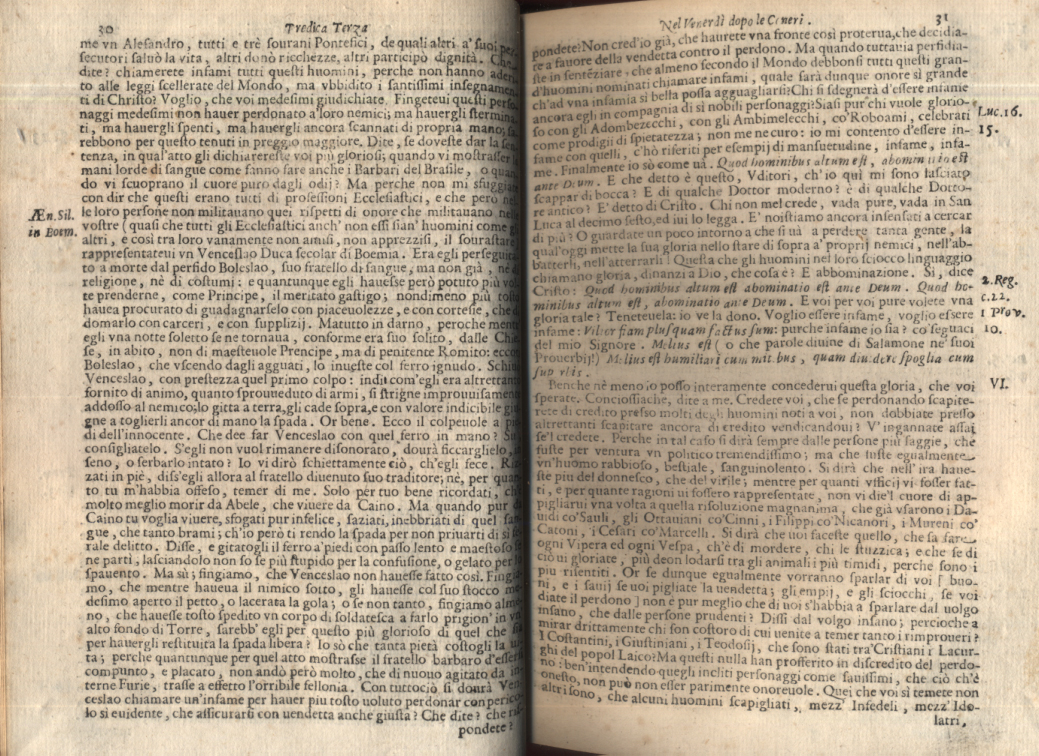 30 Predica Terza
me vn Alesandro, tutti e trè sourani Pontefici, de quali altri a' suoi per-
secutori saluò la vita, altri donò ricchezze, altri participò dignità. Che
dite? chiamerete infami tutti questi huomini, perche non hanno
to alle leggi scellerate del Mondo, ma vbbidito i santissimi insegnamen
ti di Christo? Voglio, che voi medesimi giudichiate. Fingeteui questi perso
naggi medesimi non hauer perdonato a'loro nemici; ma hauergli stermina
ti, ma hauergli spenti, ma hauergli ancora scannati di propria mano;
rebbono per questo tenuti in preggio maggiore. Dite, se doueste dar la sen
tenza, in qual'atto gli dichiarereste voi più gloriosi; quando vi mostrasser
mani lorde di sangue come fanno fare anche i Barbari del Brasile, o quan
do vi scuoprano il cuore puro dagli odij? Ma perche non mi sfuggiat
con dir che questi erano tutti di professioni Ecclesiastici, e che però nel
le loro persone non militauano quei rispetti di onore che militauano nelle
vostre (quasi che tutti gli Ecclesiastici anch' non essi sian' huomini come gli
altri, e così tra loro vanamente non amisi, non apprezzisi, il sourastare
rappresentateui vn Venceslao Duca secolar di Boemia. Era egli perseguita
to a morte dal perfido Boleslao, suo fratello di sangue, ma non già, nè di
religione, nè di costumi: e quantunque egli hauesse però potuto più vol
te prenderne, come Principe, il meritato gastigo; nondimeno più tosto
hauea procurato di guadagnarselo con piaceuolezze, e con cortesie, che
domarlo con carceri, e con supplizij. Ma tutto in darno, peroche mentr
egli vna notte soletto se ne tornaua, conforme era suo solito, dalle Chie
se, in abito, non di maesteuole Prencipe, ma di penitente Romito: ecco
Boleslao, che vscendo dagli agguati, lo inueste col ferro ignudo. Schiu
Venceslao, con prestezza quel primo colpo: indi com'egli era altrettanto
fornito di animo, quanto sproueduto di armi, si strigne improuuisamente
addosso al nemico, lo gitta a terra, gli cade sopra, e con valore indicibile giu
gne a toglierli ancor di mano la spada. Or bene. Ecco il colpeuole a piè
di dell'innocente. Che dee far Venceslao con quel ferro in mano? Su
consigliatelo. S'egli non vuol rimanere disonorato, dourà ficcarglielo in
seno, o serbarlo intato? Io vi dirò schiettamente ciò, ch'egli fece. Riz
zati in piè, diss'egli allora al fratello diuenuto suo traditore; nè, per quan
to tu m'habbia offeso, temer di me. Solo per tuo bene ricordati, che
molto meglio morir da Abele, che viuere da Caino. Ma quando pur da
Caino tu voglia viuere, sfogati pur infelice, saziati, inebbriati di quel san
gue, che tanto brami; ch'io però ti rendo la spada per non priuarti di sì
rale delitto. Disse, e gitatogli il ferro a'piedi con passo lento e maestoso
ne parti, lasciandolo non so se più stupido per la confusione, o gelato per lo
spauento. Ma sù; fingiamo, che Venceslao non hauesse fatto così. Fingia
mo, che mentre haueua il nimico sotto, gli hauesse col suo stocco me
desimo aperto il petto, o lacerata la gola; o se non tanto, fingiamo alme
no, che hauesse tosto spedito vn corpo di soldatesca a farlo prigion' in vn
alto fondo di Torre, sarebb' egli per questo più glorioso di quel che sia
per hauergli restituita la spada libera? Io sò che tanta pietà costogli la vi
ta; perche quantunque per quel atto mostrasse il fratello barbaro d'esser
compunto, e placato, non andò però molto, che di nuouo agitato da in
terne Furie, trasse a effetto l'orribile fellonia. Con tuttociò si dourà Ven
ceslao chiamare vn'infame per hauer piu tosto uoluto perdonar con perico
lo si euidente, che assicurarsi con uendetta anche giusta? Che dite? che ris
pondete?
Æn. Sil.
in Boem.
Nel Venerdì dopo le Ceneri. 31
pondete? Non cred'io già, che haurete vna fronte così proterua, che decidia-
te a fauore della vendetta contro il perdono. Ma quando tuttauia perfidia-
ste in sentèziare, che almeno secondo il Mondo debbonsi tutti questi gran-
d'huomini nominati chiamare infami, quale sarà dunque onore sì grande
ch'ad vna infamia sì bella possa agguagliarsi? Chi si sdegnerà d'essere infame
ancora egli in compagnia di sì nobili personaggi? Siasi pur'chi vuole glorio-
so con gli Adombezecchi, con gli Ambimelecchi, co'Roboami, celebrati
come prodigii di spietatezza; non me ne curo: io mi contento d'essere in-
fame con quelli, c'hò riferiti per esempij di mansuetudine, infame, infa-
me. Finalmente io sò come uà. Quod hominibus altum est, abominatio est
ante Deum. E che detto è questo, Vditori, ch'io qui mi sono lasciato
scappar di bocca? E di qualche Dottor moderno? è di qualche Dotto-
re antico? E' detto di Cristo. Chi non mel crede, vada pure, vada in San
Luca al decimo sesto, ed iui lo legga. E' noi stiamo ancora insensati a cercar
di più? O guardate un poco intorno a che si uà a perdere tanta gente, la
qual'oggi mette la sua gloria nello stare di sopra a' proprij nemici, nell'ab-
batterli, nell'atterrarli! Questa che gli huomini nel loro sciocco linguaggio
chiamano gloria, dinanzi a Dio, che cosa è? E abbominazione. Si, dice
Cristo: Quod hominibus altum est abominatio est ante Deum. Quod ho-
minibus altum est, abominatio ante Deum. E voi per voi pure volete vna
gloria tale? Teneteuela: io ve la dono. Voglio essere infame, voglio essere
infame: Vilior fiam plusquam factus sum: purche infame io sia? co'seguaci
del mio Signore. Melius est (o che parole diuine di Salamone ne' suoi
Prouerbij!) Melius est humiliari cum mitibus, quam diuidere spoglia cum
superbis.
Benche nè meno io posso interamente concederui questa gloria, che voi
sperate. Conciossiache, dite a me. Credete voi, che se perdonando scapite-
rete di credito presso molti degli huomini noti a voi, non dobbiate presso
altrettanti scapitare ancora di credito vendicandoui? V' ingannate assai
se'l credete. Perche in tal caso si dirà sempre dalle persone pur saggie, che
fuste per ventura vn politico tremendissimo; ma che fuste egualmente
vn'huomo rabbioso, bestiale, sanguinolento. Si dirà che nell'ira haue-
ste piu del donnesco, che del virile; mentre per quanti vfficij vi fosser fat-
ti, e per quante ragioni ui fossero rappresentate, non vi diè'l cuore di ap-
pigliarui vna volta a quella risoluzione magnanima, che già vsarono i Da-
uidi co'Sauli, gli Ottauiani co'Cinni, i Filippi co'Nicanori, i Mureni co'
Catoni, i Cesari co'Marcelli. Si dirà che uoi faceste quello, che sa fare
ogni Vipera ed ogni Vespa, ch'è di mordere, chi le stuzzica; e che se di
ciò ui gloriate, più deon lodarsi tra gli animali i più timidi, perche sono i
piu risentiti. Or se dunque egualmente vorranno sparlar di voi [ buo-
ni, e i sauij se uoi pigliate la uendetta; gli empij, e gli sciocchi, se voi
diate il perdono ] non è pur meglio che di uoi s'habbia a sparlare dal uolgo
insano, che dalle persone prudenti? Dissi dal volgo insano; percioche a
mirar drittamente chi son costoro di cui uenite a temer tanto i rimproueri?
I Costantini, i Giustiniani, i Teodosij, che sono stati tra'Cristiani i Lacur-
ghi del popol Laico? Ma questi nulla han profferito in discredito del perdo-
no: ben'intendendo quegli incliti personaggi come sauissimi, che ciò ch'è
onesto, non può non esser parimente onoreuole. Quei che voi si temete non
altri sono, che alcuni huomini scapigliati, mezz' Infedeli, mezz' Ido-
latri,
Luc. 16.
15.
2. Reg.
c. 22.
1 Prov.
10.
VI.